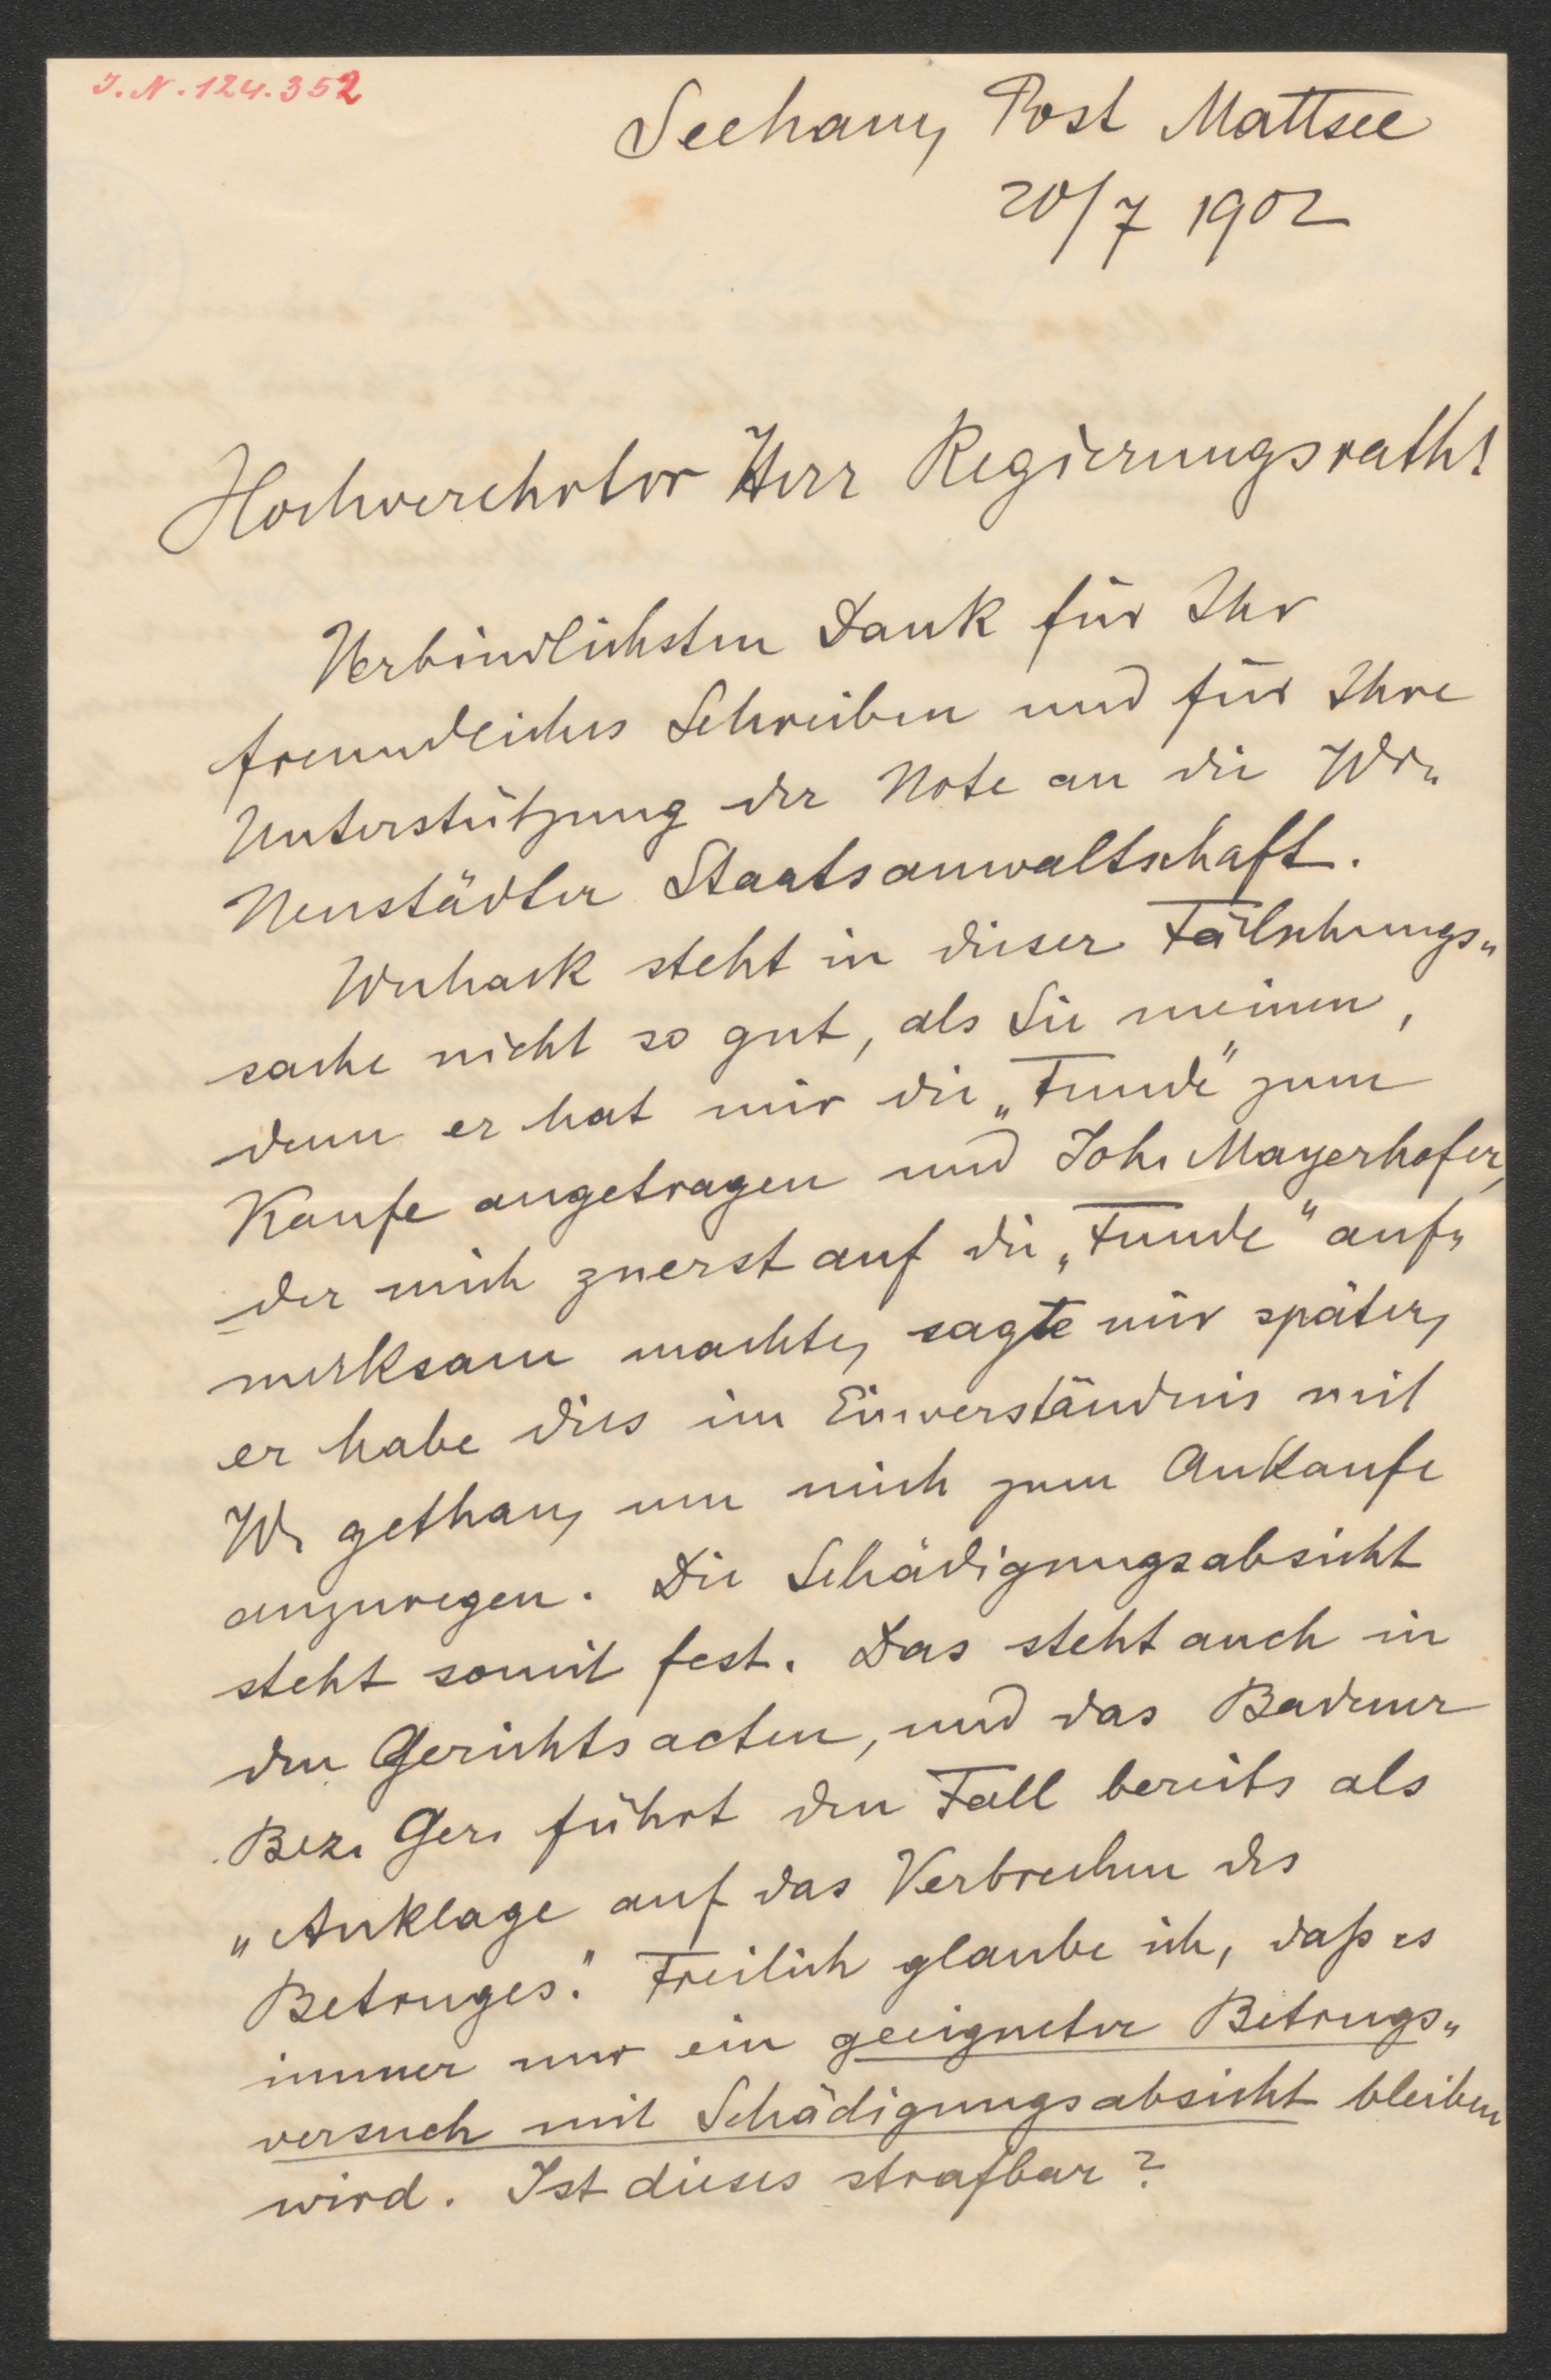 I.N. 124.352
Seeham, Post Mattsee
20/7 1902
Hochverehrter Herr Regierungsrath!
Verbindlichsten Dank für Ihr
freundliches Schreiben und für Ihre
Unterstützung der Note an die Wr.
Neustädter Staatsanwaltschaft.
steht in dieser Fälschungs„
sache nicht so gut, als Sie meinen,
denn er hat mir die „Funde“ zum
Kaufe angetragen und Joh. Mayerhofer,
der mich zuerst auf die „Funde“ auf„
merksam machte, sagte mir später,
er habe dies im Einverständnis mit
W. gethan, um mich zum Ankaufe
anzuregen. Die Schädigungsabsicht
steht somit fest. Das steht auch in
den Gerichtsacten, und das Badener
Bez. Ger. führt den Fall bereits als
„Anklage auf das Verbrechen des
Betruges.“ Freilich glaube ich, daß es
immer nur ein geeigneter Betrugs„
versuch mit Schädigungsabsicht bleiben
wird. Ist dieses strafbar?